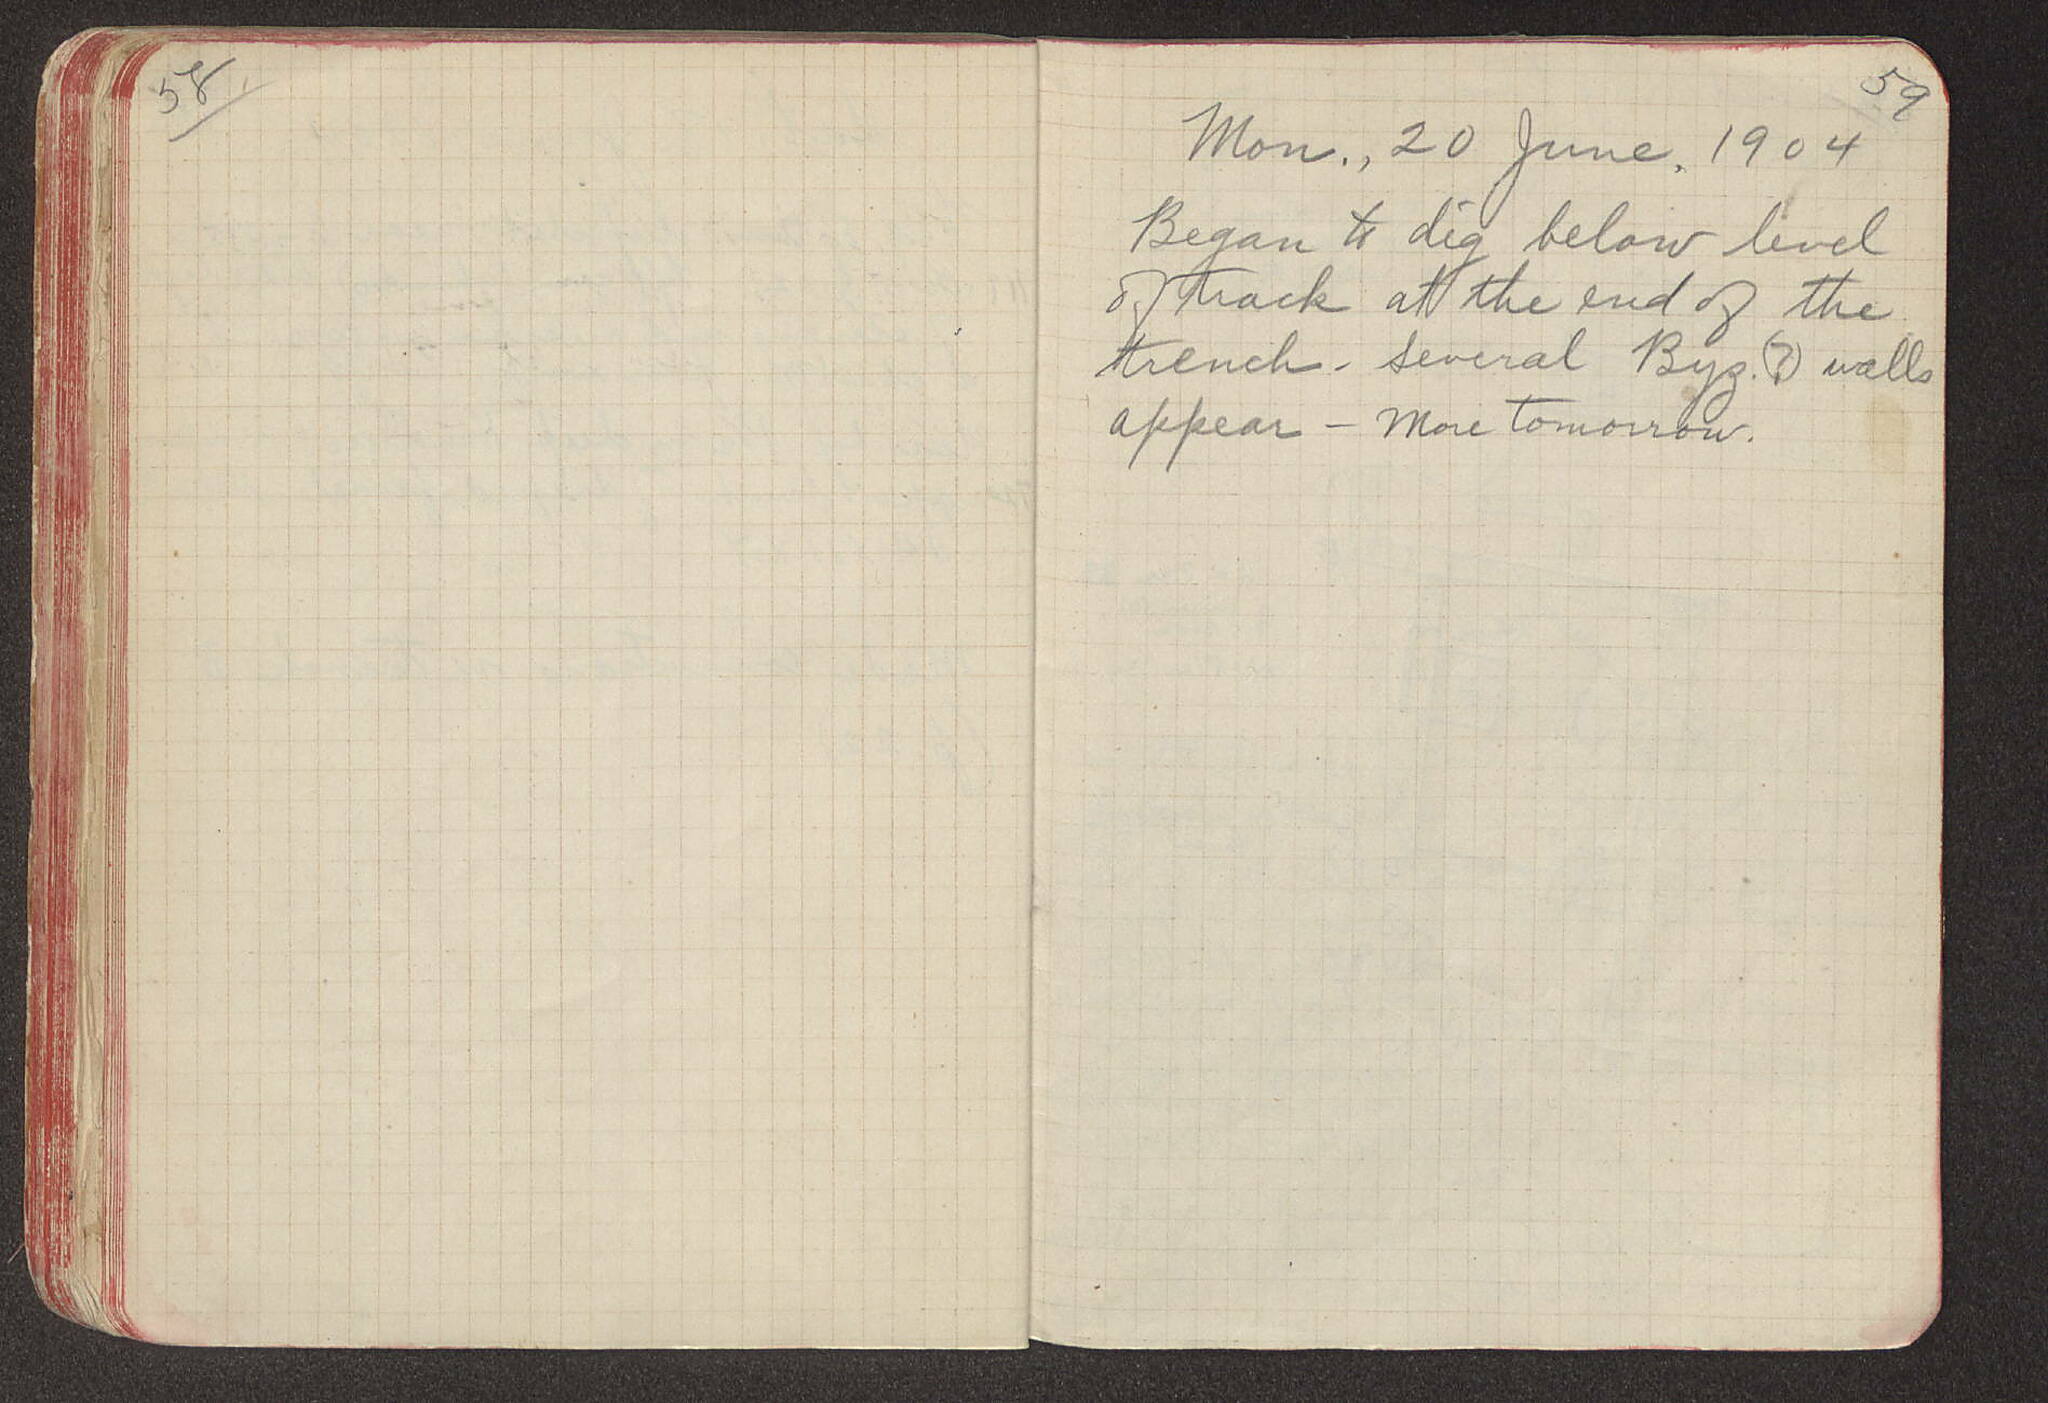 58
59
Mon., 20 June, 1904
Began to dig below level
of track at the end of the
trench - several Byz. (?) walls
appear - more tomorrow.